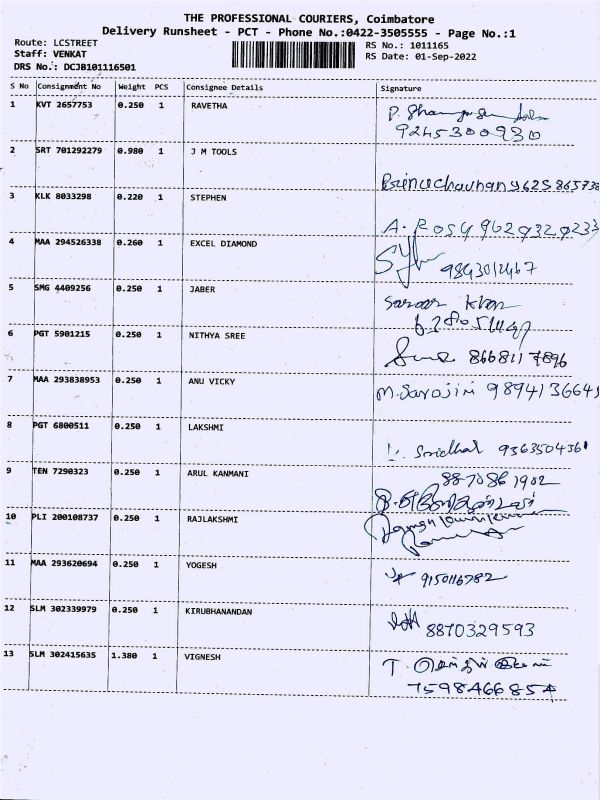 THE PROFESSIONAL COURIERS, Coimbatore
Delivery Runsheet - PCT - Phone No.:0422-3505555 - Page No.:1
Route: LCSTREET
Staff: VENKAT
DRS No.: DCJB101116501
RS No.: 1011165
RS Date: 01-Sep-2022
S No Consignment No Weight PCS Consignee Details Signature
1 KVT 2657753 0.250 1 RAVETHA
9245300930
2 SRT 701292279 0.980 1 J M TOOLS
3 KLK 8033298 0.220 1 STEPHEN
A. Rosy
4 MAA 294526338 0.260 1 EXCEL DIAMOND
5 SMG 4409256 0.250 1 JABER
Khan
6 PGT 5901215 0.250 1 NITHYA SREE
8668117896
7 MAA 293838953 0.250 1 ANU VICKY
M.Sarojini 9894136645
8 PGT 6800511 0.250 1 LAKSHMI
Sridhar
9 TEN 7290323 0.250 1 ARUL KANMANI
8870861902
10 PLI 200108737 0.250 1 RAJLAKSHMI
11 MAA 293620694 0.250 1 YOGESH
9150116782
12 SLM 302339979 0.250 1 KIRUBHANANDAN
8870329593
13 SLM 302415635 1.380 1 VIGNESH
T.
7598466854